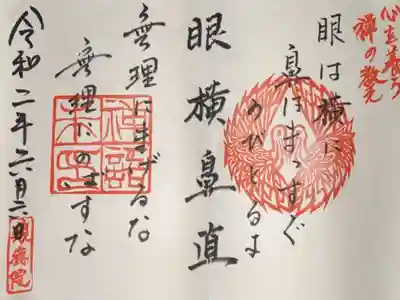 心を養う
禅の
眼は横に
鼻はまっすぐ
のびとるよ
眼横鼻直
無理にまげるな
無理にのばすな
令和二年六月六日